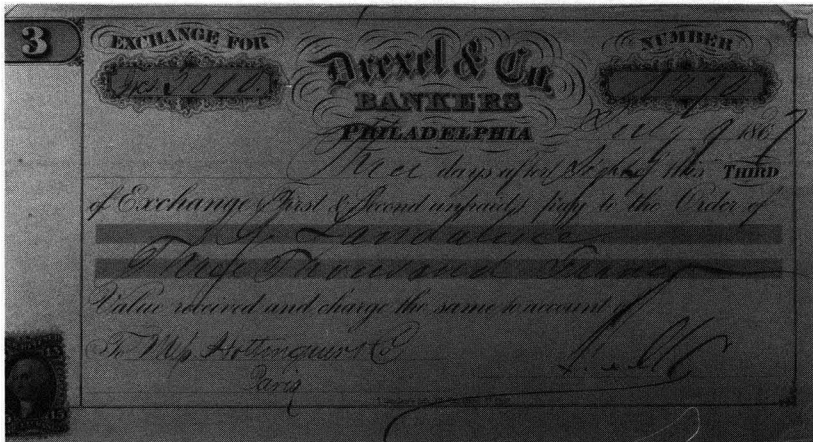 3
EXCHANGE FOR
Drexel & Co.
NUMBER
BANKERS
PHILADELPHIA
July 9 1867
Three days after Sight of this THIRD
of Exchange (First & Second unpaid) pay to the Order of
Three Thousand Francs
Value received and charge the same to account of
To Hottinguer & Co
Paris